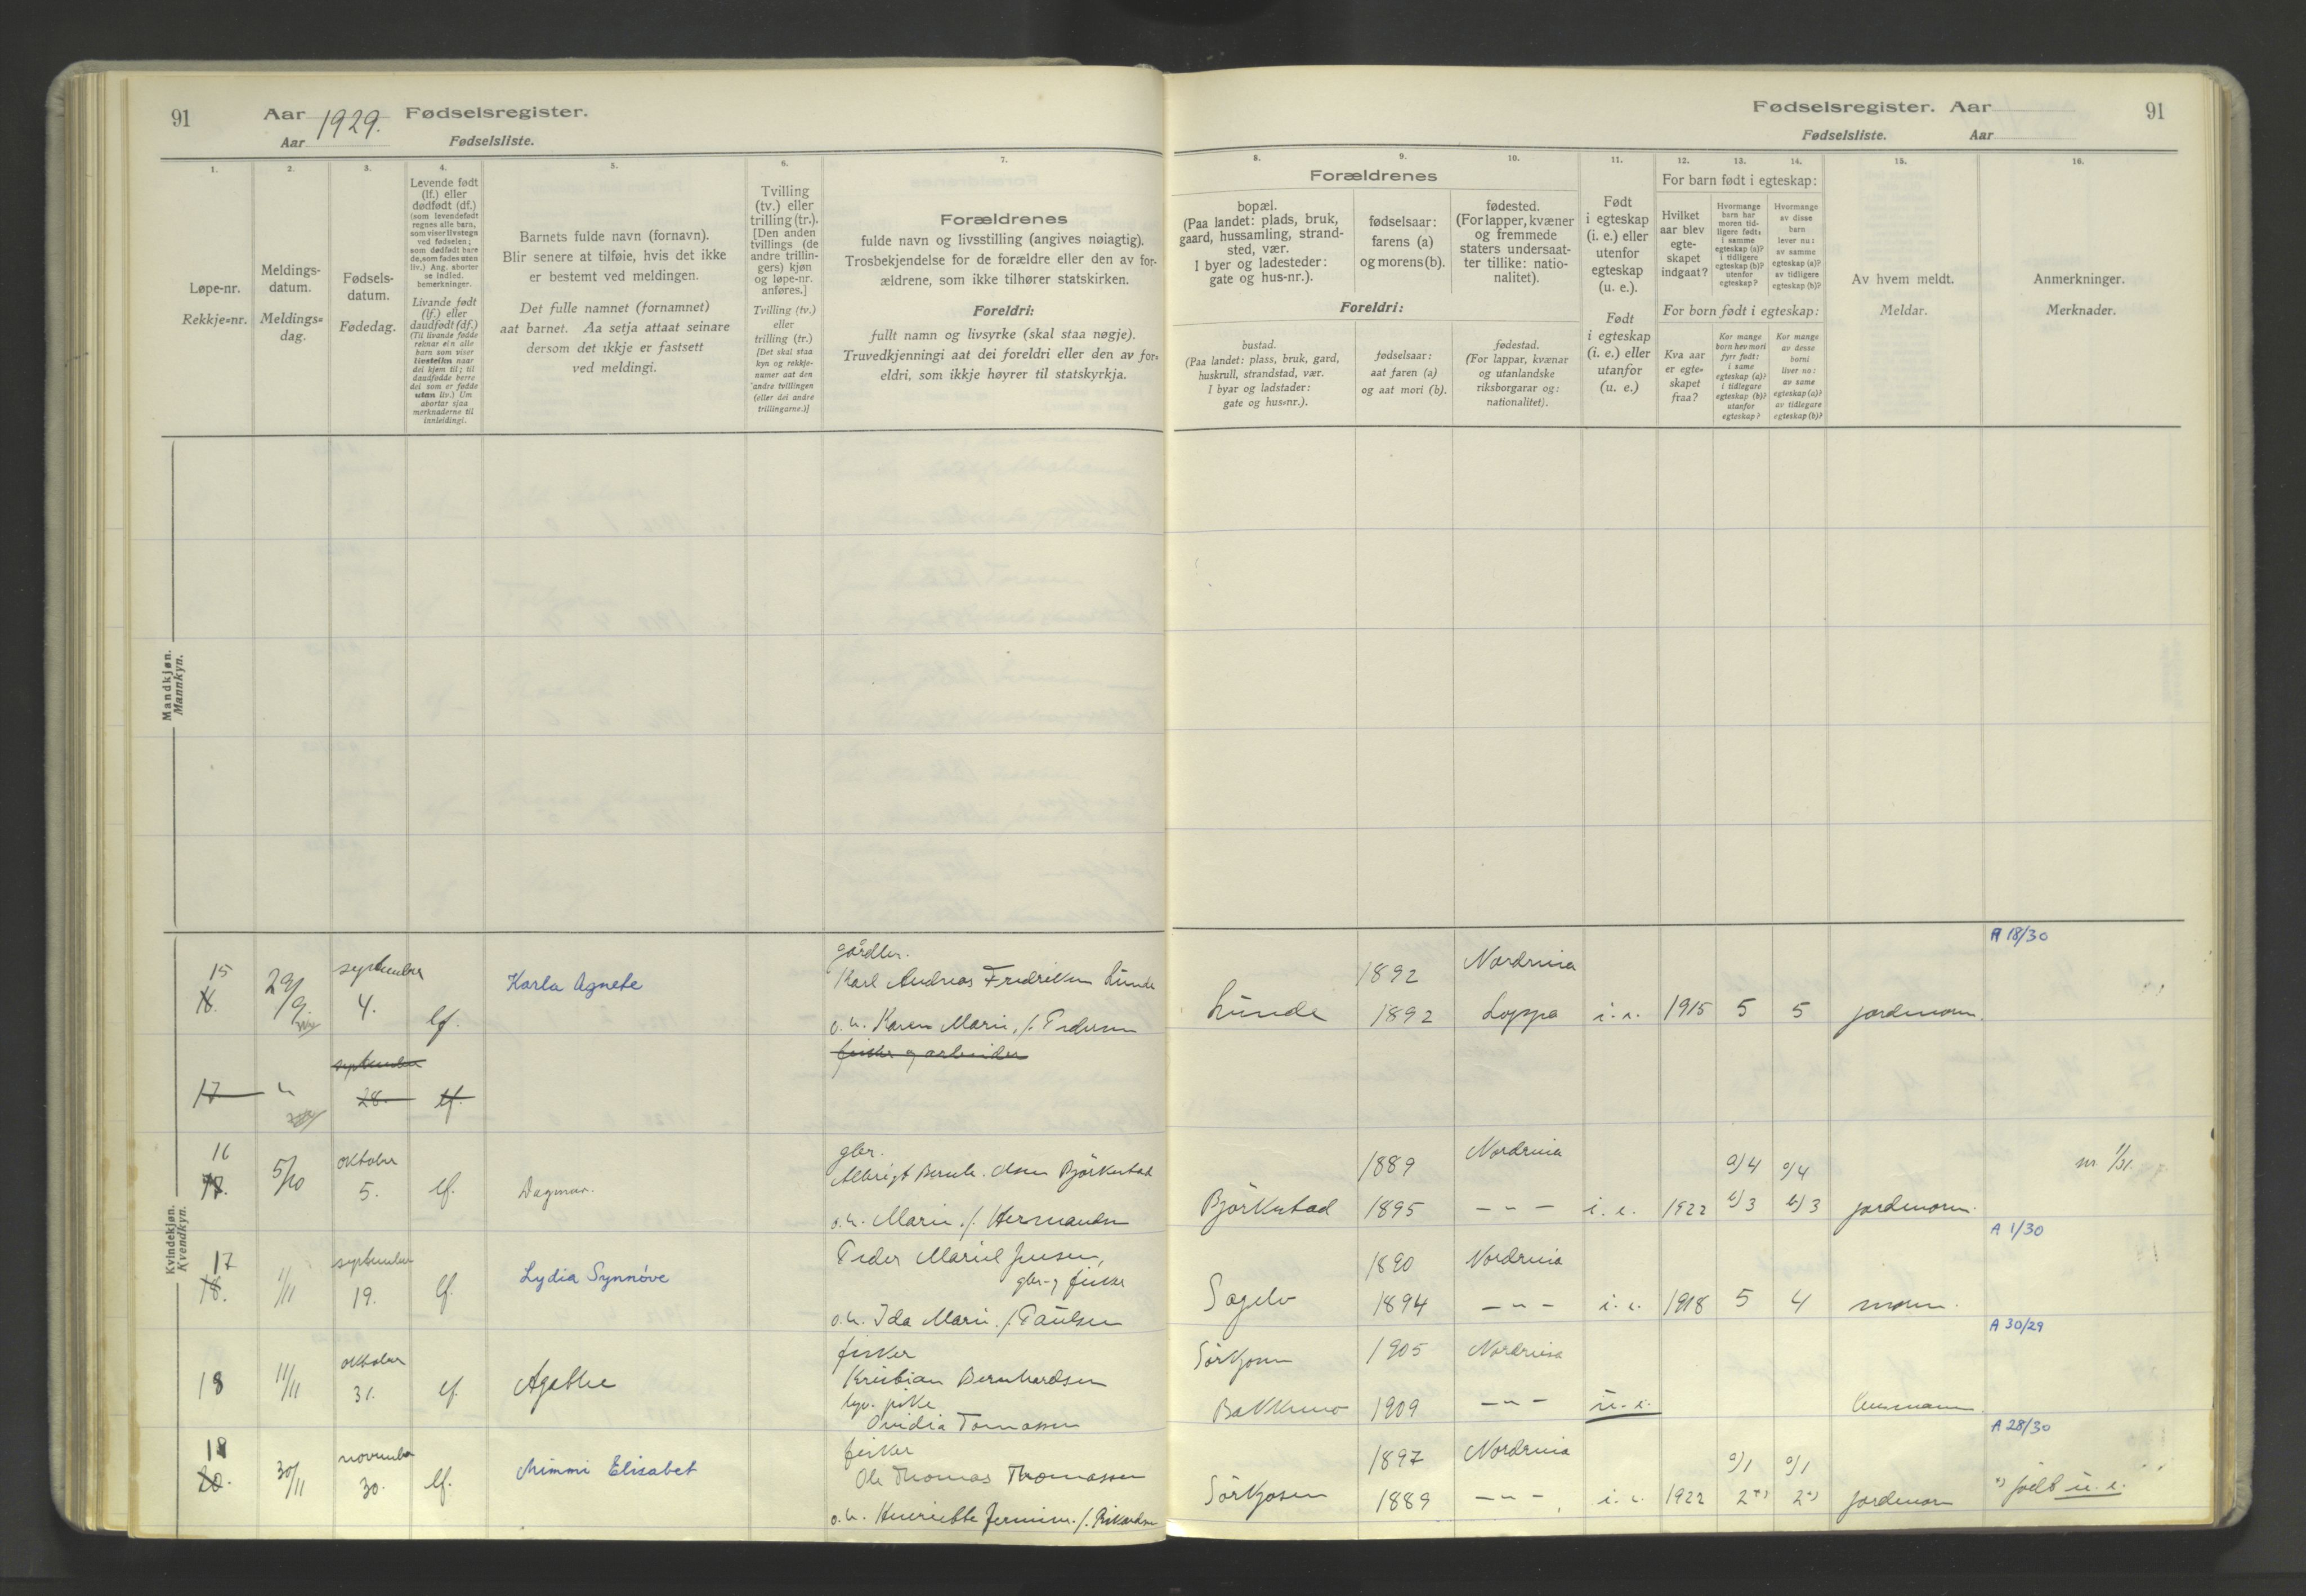 91
Aar 1929. Fødselsregister.
Aar Fødselsliste.
1.
2.
3.
4.
5.
6.
7.
Løpe-nr.
Rekkje-nr.
Meldings-
datum.
Meldings-
dag.
Fødsels-
datum.
Fødedag.
Levende født
(lf.) eller
dødfødt (df.)
(som levendefødt
regnes alle barn,
som viser livstegn
ved fødselen;
som dødfødt bare
de, som fødes uten
liv.) Ang. aborter
se indled.
bemerkninger.
Livande født
(lf.) eller
daudfødt (df.)
(Til livande fødde
reknar ein alle
barn som viser
livsteikn naar
dei kjem til; til
daudfødde berre
dei som er fødde
utan liv.) Um
abortar sjaa
merknaderne til
innleidingi.
Barnets fulde navn (fornavn).
Blir senere at tilføie, hvis det ikke
er bestemt ved meldingen.
Det fulle namnet (fornamnet)
aat barnet. Aa setja attaat seinare
dersom det ikkje er fastsett
ved meldingi.
Tvilling
(tv.) eller
trilling (tr.).
[Den anden
tvillings (de
andre trillin-
gers) kjøn
og løpe-nr.
anføres.]
Tvilling (tv.)
eller
trilling (tr.)
[Det skal staa
kyn og rekkje-
numer aat den
andre tvillingen
(eller dei andre
trillingarne.)]
Forældrenes
fulde navn og livsstilling (angives nøiagtig).
Trosbekjendelse for de forældre eller den av for-
ældrene, som ikke tilhører statskirken.
Foreldri:
fullt namn og livsyrke (skal staa nøgje).
Truvedkjenningi aat dei foreldri eller den av for-
eldri, som ikkje høyrer til statskyrkja.
Fødselsregister. Aar
91
Fødselsliste. Aar
8.
9.
10.
11.
12.
13.
14.
15.
16.
Forældrenes
bopæl.
(Paa landet: plads, bruk,
gaard, hussamling, strand-
sted, vær.
I byer og ladesteder:
gate og hus-nr.).
fødselsaar:
farens (a)
og morens (b).
fødested.
(For lapper, kvæner
og fremmede
staters undersaat-
ter tillike: natio-
nalitet).
Foreldri:
bustad.
(Paa landet: plass, bruk, gard,
huskrull, strandstad, vær.
I byar og ladstader:
gate og hus-nr.).
fødselsaar:
aat faren (a)
og aat mori (b).
fødestad.
(For lappar, kvænar
og utanlandske
riksborgarar og:
nationalitet).
Født
i egteskap
(i. e.) eller
utenfor
egteskap
(u. e.).
Født
i egteskap
(i. e.) eller
utanfor
(u. e.)
For barn født i egteskap:
Hvilket
aar blev
egte-
skapet
indgaat?
Hvormange
barn har
moren tid-
ligere født:
i samme
egteskap (a)?
i tidligere
egteskap (b)?
utenfor
egteskap?
Hvormange
av disse
barn
lever nu:
av samme
egteskap (a)?
av tidligere
egteskap (b)?
For born født i egteskap:
Kva aar
er egte-
skapet
fraa?
Kor mange
born hev mori
fyrr født:
i same
egteskap (a)?
i tidlegare
egteskap (b)?
utanfor
egteskap?
Kor mange
av desse
borni
liver no:
av same
egteskap (a)?
av tidlegare
egteskap (b)?
Av hvem meldt.
Meldar.
Anmerkninger.
Merknader.
Mandkjøn.
Mannkyn.
Kvindekjøn.
Kvendkyn.
A 18/30
15
16.
29/9.
september
4.
lf.
Karla Agnete
gårdbr.
Karl Andreas Fredriksen Lunde
o. h. Karen Marie, f. Pedersen
Lunde
1892
1892
Nordreisa
Loppa
i. e.
1915
5
5
jordmoren.
17
"
september
28.
lf.
fisker og arbeider
16
5/10
oktober
5.
lf.
Dagmar.
gbr.
Albrigt Bernh. Olsen Björkestad
o. h. Marie, f. Hermansen
Björkestad
1889
1895
Nordreisa
— " —
i. e.
1922
a) 4
b) 3
a) 4
b) 3
jordmoren.
A 1/30
17
18.
1/11
september
19.
lf.
Lydia Synnöve
Peder Mariel Jensen,
gbr. og fisker
o. h. Ida Marie, f. Paulsen
Sagelv
1890
1894
Nordreisa
— " —
i. e.
1918
5
4
moren.
A 30/29
18
11/11
oktober
31.
lf.
Agathe
fisker
Kristian Bernhardsen
pike
Ovidia Tomassen
Sörkjosen
Bakkemo
1905
1909
Nordreisa
— " —
u. e.
A 28/30
20.
30/11
november
30.
lf.
Mimmi Elisabet
fisker
Ole Thomas Thomassen
o. h. Henriette Jermine, f. Rikardsen
Sörkjosen
1897
1889
Nordreisa
— " —
i. e.
1922
a) 1
2 *)
a) 1
2 *)
jordmoren
*) født u. e.